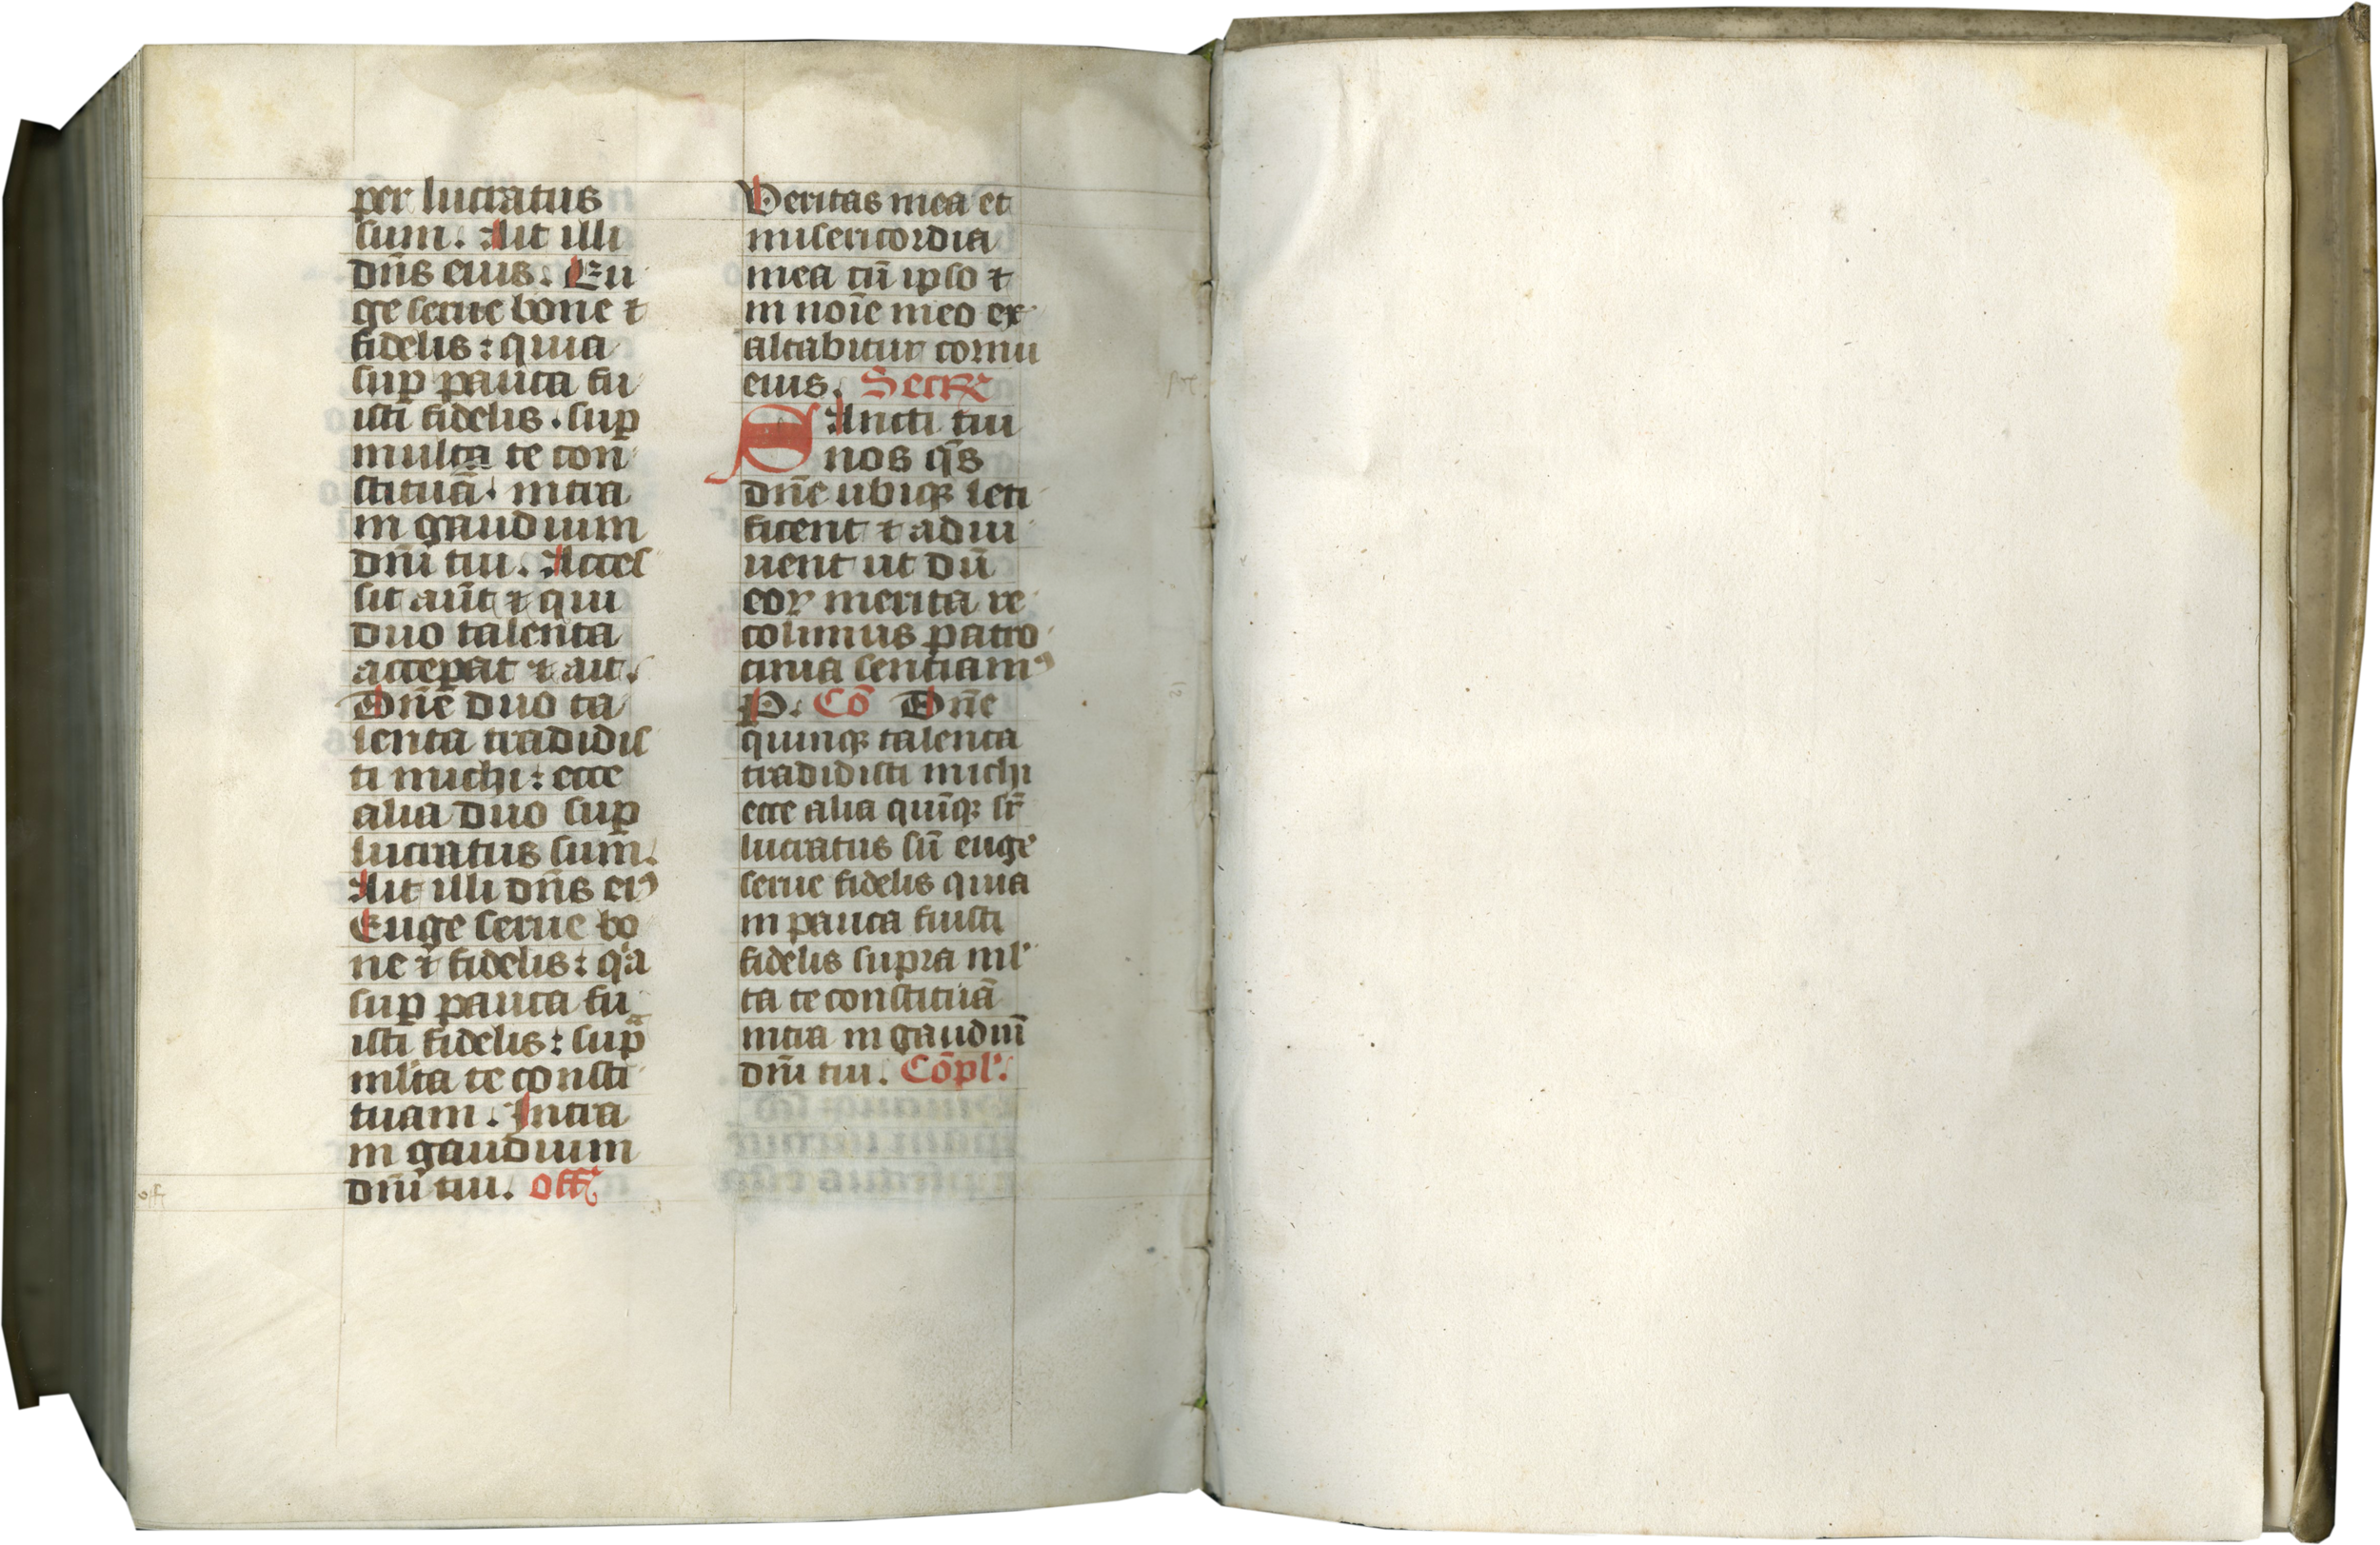 per lucratus
sum. Ait illi
dn̄s eius. Eu
ge serue bone ⁊
fidelis : quia
suꝑ pauca fu
isti fidelis . suꝑ
multa te con
stituā. intra
in gaudium
dn̄i tui. Acces
sit aūt ⁊ qui
duo talenta
acceꝑat ⁊ ait.
Dn̄e duo ta
lenta tradidis
ti michi : ecce
alia duo suꝑ
lucratus sum.
Ait illi dn̄s eiꝰ
Euge serue bo
ne ⁊ fidelis : qͥa
suꝑ pauca fu
isti fidelis : supᷓ
ml'ta te consti
tuam. Intra
in gaudium
dn̄i tui. off
Veritas mea et
misericordia
mea cū ipso ⁊
in noīe meo ex
altabitur cornu
eius. Secr
SAncti tui
nos qs̄
dn̄e ubiqꝫ leti
ficent ⁊ adiu
uent ut dū
eoꝝ merita re
colimus patro
cinia sentiamꝰ
P. Cō Dn̄e
quinqꝫ talenta
tradidisti michi
ecce alia quīqꝫ sr̄
lucratus sū euge
serue fidelis quia
in pauca fuisti
fidelis supra ml'
ta te constituā
intra in gaudiū
dn̄i tui. Cōpl'.
off